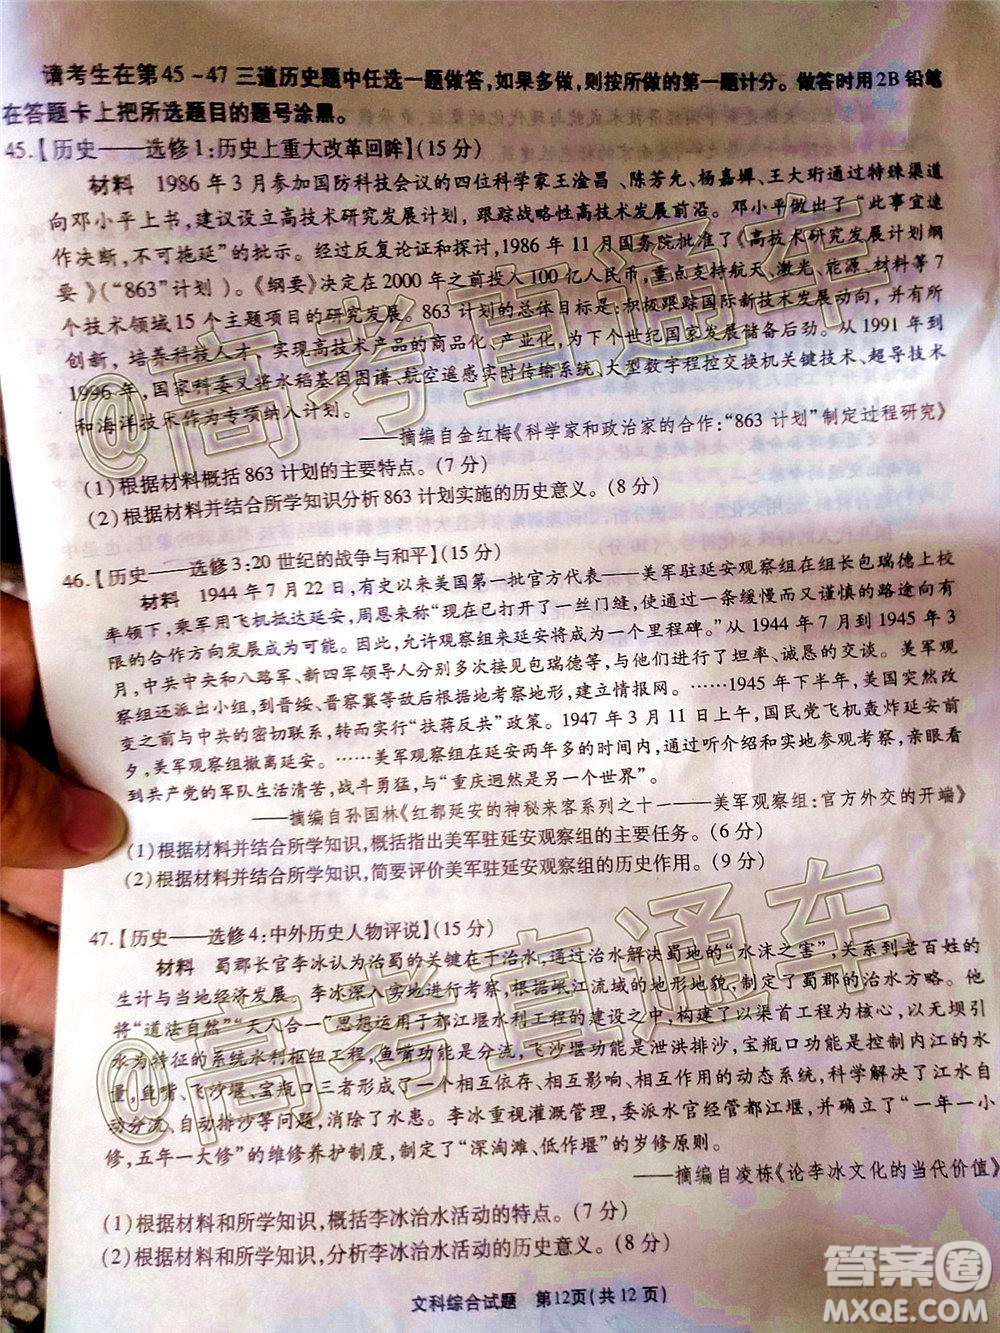 请考生在第45~47三道历史题中任选一题做答,如果多做,则按所做的第一题计分。做答时用2B铅笔
在答题卡上把所选题目的题号涂黑。
45.【历史——选修1:历史上重大改革回眸】(15分)
材料 1986年3月参加国防科技会议的四位科学家王淦昌、陈芳允、杨嘉墀、王大珩通过特殊渠道
向邓小平上书,建议设立高技术研究发展计划,跟踪战略性高技术发展前沿。邓小平做出了“此事宜速
作决断,不可拖延”的批示。经过反复论证和探讨,1986年11月国务院批准了《高技术研究发展计划纲
要》(“863”计划)。《纲要》决定在2000年之前投入100亿人民币,重点支持航天、激光、能源、材料等7
个技术领域15个主题项目的研究发展。863计划的总体目标是:积极跟踪国际新技术发展动向,并有所
创新,培养科技人才、实现高技术产品的商品化、产业化,为下个世纪国家发展储备后劲。从1991年到
1996年,国家科委又将水稻基因图谱、航空遥感实时传输系统、大型数字程控交换机关键技术、超导技术
和海洋技术作为专项纳入计划。
——摘编自金红梅《科学家和政治家的合作:“863计划”制定过程研究》
(1)根据材料概括863计划的主要特点。(7分)
(2)根据材料并结合所学知识分析863计划实施的历史意义。(8分)
46.【历史——选修3:20世纪的战争与和平】(15分)
材料 1944年7月22日,有史以来美国第一批官方代表——美军驻延安观察组在组长包瑞德上校
率领下,乘军用飞机抵达延安,周恩来称“现在已打开了一丝门缝,使通过一条缓慢而又谨慎的路途向有
限的合作方向发展成为可能。因此,允许观察组来延安将成为一个里程碑。”从1944年7月到1945年3
月,中共中央和八路军、新四军领导人分别多次接见包瑞德等,与他们进行了坦率、诚恳的交谈。美军观
察组还派出小组,到晋绥、晋察冀等敌后根据地考察地形,建立情报网。……1945年下半年,美国突然改
变之前与中共的密切联系,转而实行“扶蒋反共”政策。1947年3月11日上午,国民党飞机轰炸延安前
夕,美军观察组撤离延安。……美军观察组在延安两年多的时间内,通过听介绍和实地参观考察,亲眼看
到共产党的军队生活清苦,战斗勇猛,与“重庆迥然是另一个世界”。
——摘编自孙国林《红都延安的神秘来客系列之十一——美军观察组:官方外交的开端》
(1)根据材料并结合所学知识,概括指出美军驻延安观察组的主要任务。(6分)
(2)根据材料并结合所学知识,简要评价美军驻延安观察组的历史作用。(9分)
47.【历史——选修4:中外历史人物评说】(15分)
材料 蜀郡长官李冰认为治蜀的关键在于治水,通过治水解决蜀地的“水沫之害”,关系到老百姓的
生计与当地经济发展。李冰深入实地进行考察,根据岷江流域的地形地貌,制定了蜀郡的治水方略。他
将“道法自然”“天人合一”思想运用于都江堰水利工程的建设之中,构建了以渠首工程为核心,以无坝引
水为特征的系统水利枢纽工程,鱼嘴功能是分流,飞沙堰功能是泄洪排沙,宝瓶口功能是控制内江的水
量,鱼嘴、飞沙堰、宝瓶口三者形成了一个相互依存、相互影响、相互作用的动态系统,实现了江水自
动分流、自动排沙等功能,减少了水患。李冰重视灌溉管理,委派水官经管都江堰,并确立了“一年一小
修,五年一大修”的维修养护制度,制定了“深淘滩、低作堰”的岁修原则。
——摘编自凌栋《论李冰文化的当代价值》
(1)根据材料和所学知识,概括李冰治水活动的特点。(7分)
(2)根据材料和所学知识,分析李冰治水活动的历史意义。(8分)
文科综合试题 第12页(共12页)
@高考直通车
@高考直通车
答案圈
MXQE.COM